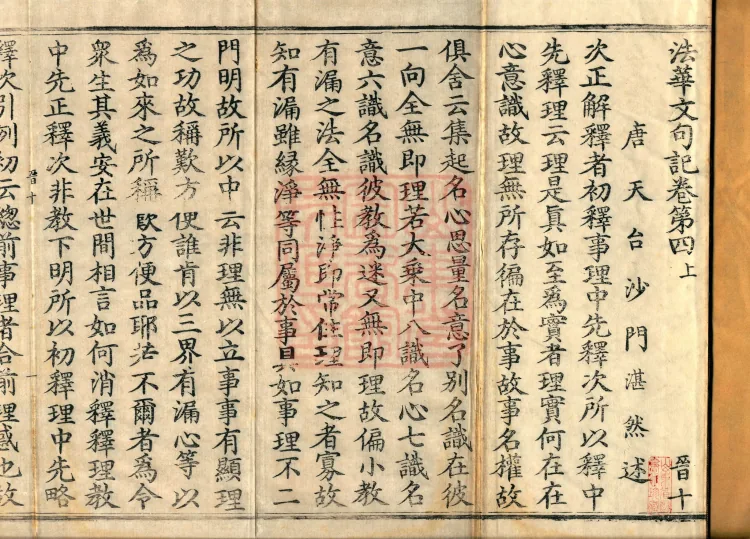 法華文句記卷第四上
晉十
唐天台沙門湛然述
次正解釋者初釋事理中先釋次所以釋中
先釋理云理是真如至為實者理實何在在
心意識故理無所存徧在於事故事名權故
俱舍云集起名心思量名意了別名識在彼
一向全無即理若大乘中八識名心七識名
意六識名識彼教為迷又無即理故偏小教
有漏之法全無性淨即常住理知之者寡故
知有漏雖緣淨等同屬於事具如事理不二
門明故所以中云非理無以立事事有顯理
之功故稱歎方便誰肯以三界有漏心等以
為如來之所稱歎方便品耶若不爾者為令
衆生其義安在世間相言如何消釋釋理教
中先正釋次非教下明所以初釋理中先略
晉十 一
釋次引例初云總前事理者合前理惑也故